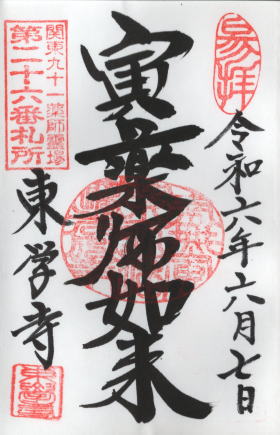 奉拝
令和六年六月七日
寅薬師如来
関東九十一薬師霊場
第二十六番札所
東学寺